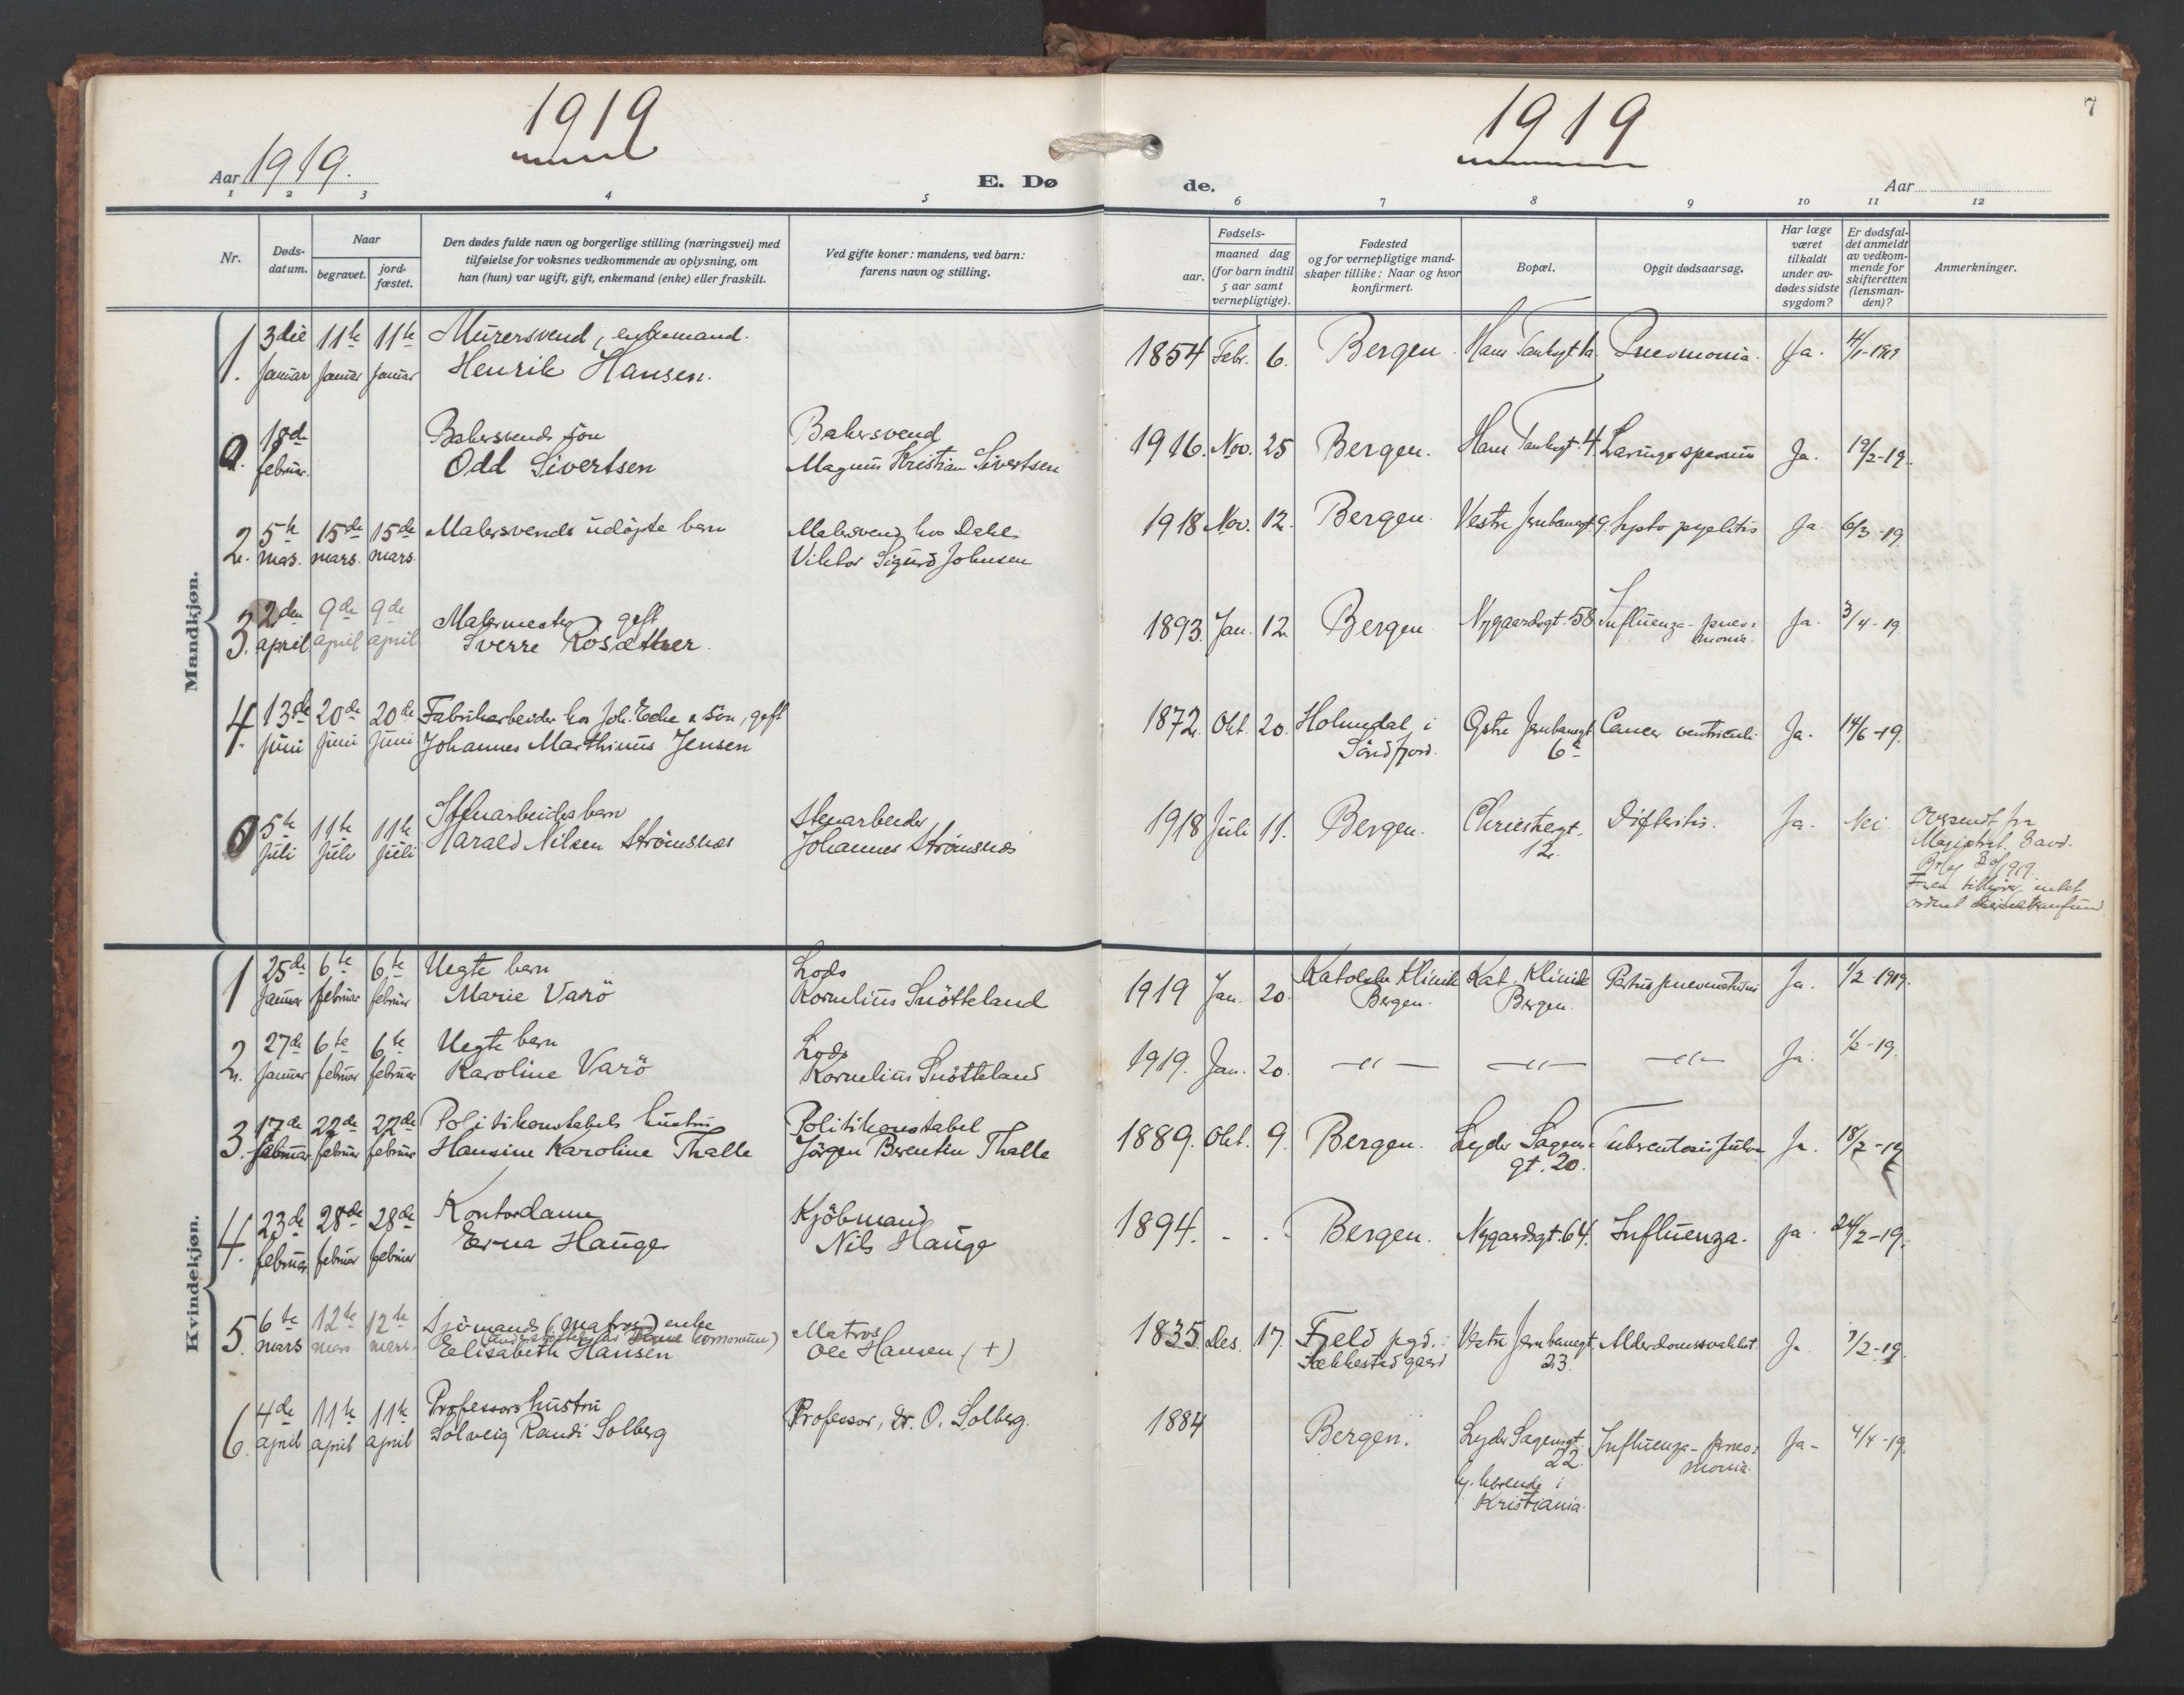 1919
1919
7
Aar 1919.
E. Dø
de.
Aar
1 2 3 4 5 6 7 8 9 10 11 12
Nr.
Døds-
datum.
Naar
begravet.
jord-
fæstet.
Den dødes fulde navn og borgerlige stilling (næringsvei) med
tilføielse for voksnes vedkommende av oplysning, om
han (hun) var ugift, gift, enkemand (enke) eller fraskilt.
Ved gifte koner: mandens, ved barn:
farens navn og stilling.
Fødsels-
aar.
maaned dag
(for barn indtil
5 aar samt
vernepligtige).
Fødested
og for vernepligtige mand-
skaper tillike: Naar og hvor
konfirmert.
Bopæl.
Opgit dødsaarsag.
Har læge
været
tilkaldt
under av-
dødes sidste
sygdom?
Er dødsfal-
det anmeldt
av vedkom-
mende for
skifteretten
(lensman-
den)?
Anmerkninger.
Mandkjøn.
1. 3die 11te 11te Murersvend, enkemand. 1854 Febr. 6. Bergen. Hans Tanksgt 1a. Pneumonia. Ja. 4/1-1919
Januar Januar Januar Henrik Hansen.
0. 18de Bakersvends søn Bakersvend 1916. Nov. 25 Bergen. Hans Tanksgt. 4. Ja. 19/2-19.
februar. Odd Sivertsen Magnus Kristian Sivertsen
2. 5te 15de 15de Malersvends udøpte barn Malersvend hos Dahl. 1918 Nov. 12. Bergen. Vestre Jernbanegt 9. Septo pyelitis Ja. 6/3-19.
mas. mars. mars. Viktor Sigurd Johnsen
3. 2den 9de 9de Malermester gift 1893. Jan. 12. Bergen Nygaardsgt. 58 Influenza-pneu-
monia. Ja. 3/4-19
april april april Sverre
4. 13de 20de 20de Fabrikarbeider hos Joh. & Søn, gift 1872. Okt. 20. Holmedal i Østre Jernbanegt Cancer ventriculi Ja. 14/6-19.
juni juni juni Johannes Marthinus Jensen Söndfjord. 6a
0 5te 11te 11te Stenarbeiders barn Stenarbeider 1918 Juli 11. Bergen. Christiesgt. Difteritis. Ja. Nei Oversendt fra
juli juli juli Harald Nilsen Strömsnes Johannes Strömsnes 12. Magistrat. 3 avd.
1919.
tilhører intet
ordnet
Kvindekjøn.
1 25de 6te 6te Uegte barn Lods 1919 Jan. 20. Katolske Klinik Kat. Klinik Ja. 1/2-1919.
Januar februar februar Marie Varö Kornelius Snötteland Bergen. Bergen.
2. 27de 6te 6te Uegte barn Lods 1919. Jan. 20. —"— —"— —"— Ja. 1/2-19.
Januar februar februar Karoline Varö Kornelius Snötteland
3. 17de 22de 22de Politikonstabels hustru Politikonstabel 1889. Okt. 9. Bergen. Lyder Sagens- Ja. 18/2-19
februar februar februar Hansine Karoline Thalle Jörgen Berentin Thalle gt. 20.
4. 23de 28de 28de Kontordame Kjöbmand 1894. - - Bergen. Nygaardsgt. 64. Influenza. Ja. 24/2-19.
februar februar februar Erna Hauge Nils Hauge
5. 6te 12te 12te Sjömands (matros) enke Matros 1835 Des. 17. Fjeld pgd. Vestre Jernbanegt. Alderdomssvakhet Ja
mars mars mars. Elisabeth Hansen Ole Hansen (+) gaard 23.
6. 4de 11te 11te Professors hustru Professor, Dr. O. Solberg. 1884 Bergen. Lyder Sagensgt. Influenza-pneu- Ja- 4/4-19.
april april april Solveig Randi Solberg 22. monia.
hj. hörende i
Kristiania.